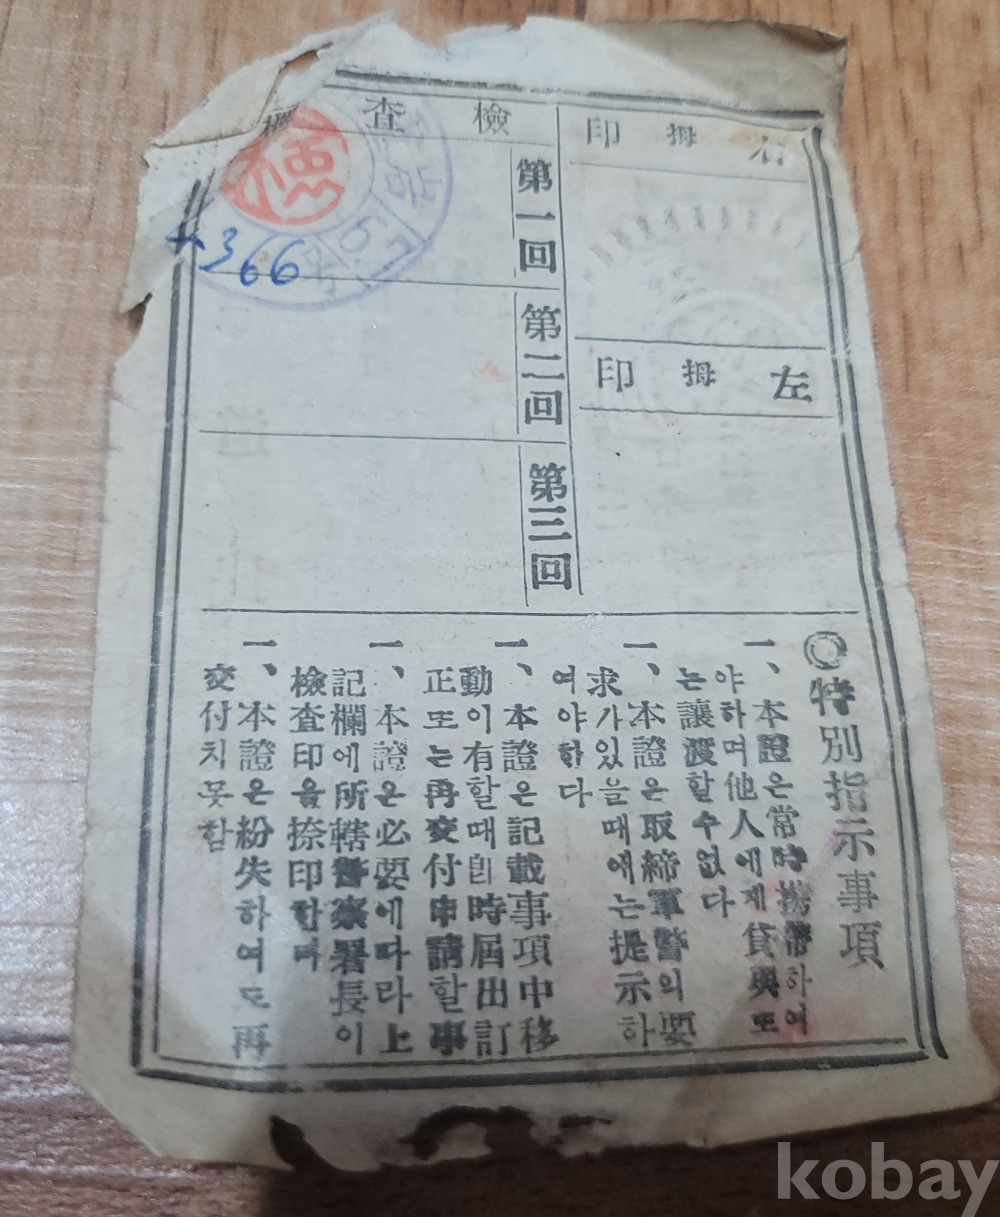 右拇印
左拇印
檢査欄
第一回
第二回
第三回
◎特別指示事項
一、本證은常時携帶하여
야하며他人에게貸與또
는讓渡할수없다
一、本證은取締軍警의要
求가있을때에는提示하
여야한다
一、本證은記載事項中移
動이有할때卽時屆出訂
正또는再交付申請할事
一、本證은必要에따라上
記欄에所轄警察署長이
檢査印을捺印한다
一、本證은紛失하여도再
交付치못함
366
kobay